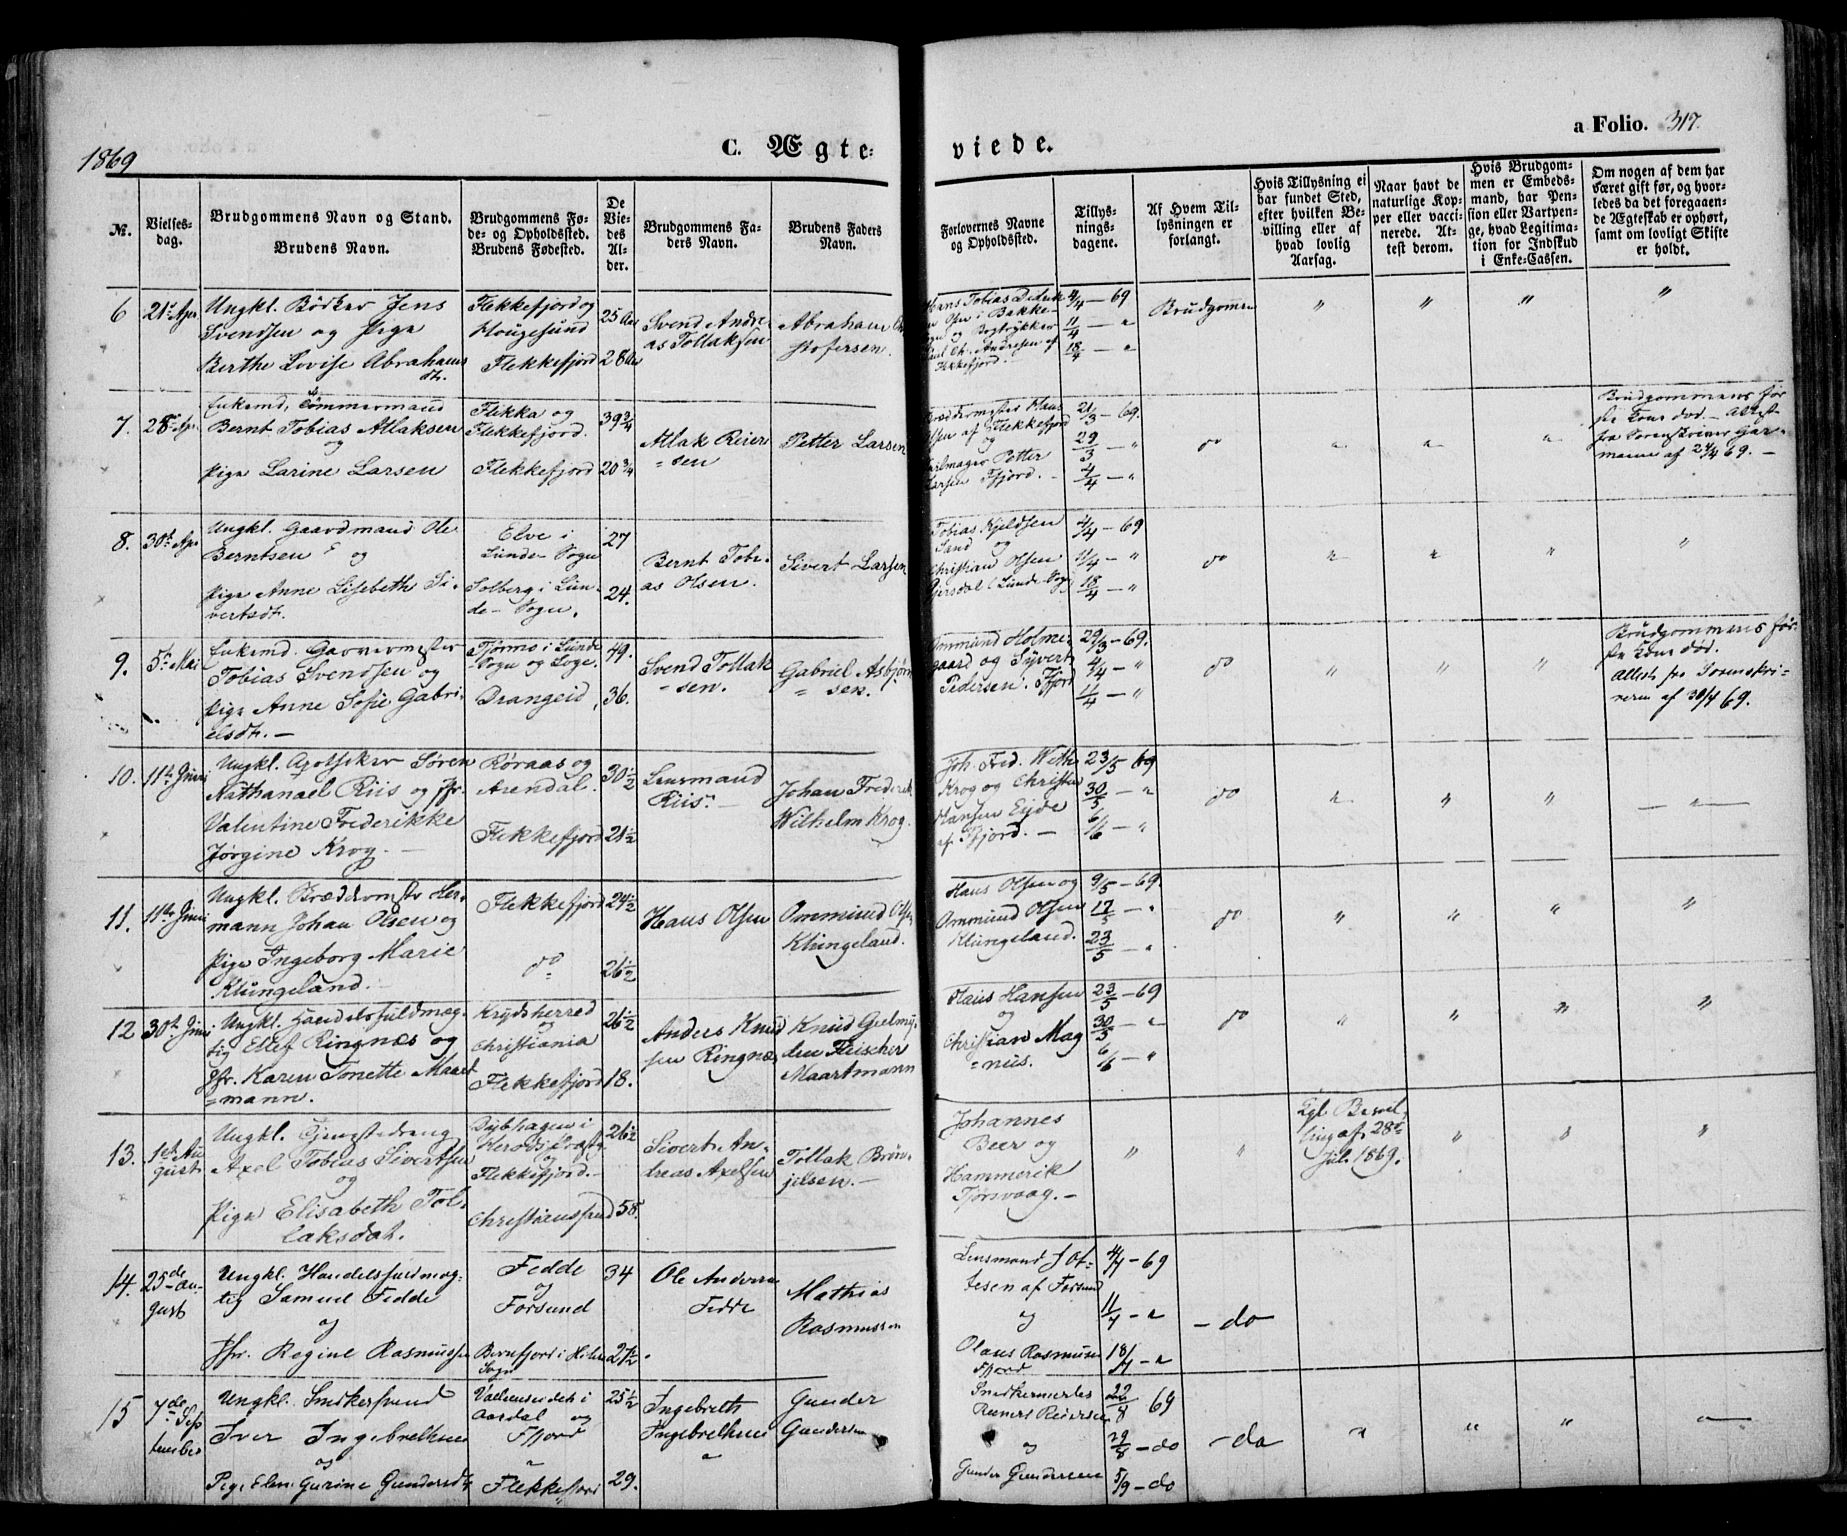 1869
C. Ægte-
viede.
a Folio. 317.
№.
Vielses-
dag.
Brudgommens Navn og Stand.
Brudens Navn.
Brudgommens Fø-
de- og Opholdssted.
Brudens Fødested.
De
Vie-
des
Al-
der.
Brudgommens Fa-
ders Navn.
Brudens Faders
Navn.
Forlovernes Navne
og Opholdssted.
Tillys-
nings-
dagene.
Af Hvem Til-
lysningen er
forlangt.
Hvis Tillysning ei
har fundet Sted,
efter hvilken Be-
villing eller af
hvad lovlig
Aarsag.
Naar havt de
naturlige Kop-
per eller vacci-
nerede. At-
test derom.
Hvis Brudgom-
men er Embeds-
mand, har Pen-
sion eller Vartpen-
ge, hvad Legitima-
tion for Indskud
i Enke-Cassen.
Om nogen af dem har
været gift før, og hvor-
ledes da det foregaaen-
de Ægteskab er ophørt,
samt om lovligt Skifte
er holdt.
6
21de Apr
Ungkl. Bödker Jens
Svendsen og Pige
Berthe Lovise Abrahams
dt.
Flekkefjord og
Hougesund
Flekkefjord
25 Aar
28 Aar
Svend Andre-
as Tollaksen
Abraham
Hans Tobias Didrik
Flekkefjord.
4/4 — 69
11/4 — "
18/4 — "
Brudgommen
" " " "
7.
28de Apr
Enkemd, Tömmermand
Bernt Tobias Atlaksen
og
Pige Larine Larsen
Flikka og
Flekkefjord.
Flekkefjord
39 3/4
20 3/4
Atlak Reier
=sen
Petter Larsen
Bræddermester Hans
Olsen af Flekkefjord
og
Petter
Larsen Ffjord.
21/3 — 69.
29/3 — "
4/4 — "
do
" " "
Brudgommens før
ste Kone död. — Attest
fra Sorenskriver Gar-
mann af 24/4 69. —
8.
30te Apr
Ungkl. Gaardmand Ole
Berntsen og
Pige Anne Lisebeth Si-
vertsdt.
Elve i
Lunde-Sogn
Solberg i Lun-
de-Sogn.
27
24.
Bernt Tobi-
as Olsen.
Sivert Larsen
Tobias Kjeldsen
Sand og
Christian Olsen
Girsdal (Lunde Sogn)
4/4 — 69
11/4 — "
18/4 — "
do
" " " "
9.
5te Mai
Enkemd. Garvermester
Tobias Svendsen og
Pige Anne Sofie Gabri-
elsdt. —
Tjörms i Lunde
Sogn og Loge.
Drangeid
49.
36.
Svend Tollak
=sen.
Gabriel Asbjörn
=sen.
Ommund Holme-
gaard og Syvert
Pedersen. Ffjord
29/3 — 69.
4/4 — "
11/4 — "
do
" " "
Brudgommens før-
ste Kone död.
Attest fra Sorenskri-
veren af 30/4 69.
10.
11te Juni
Ungkl. Apotheker Sören
Nathanael Riis og Jfr.
Valentine Frederikke
Jörgine Krog.
Röraas og
Arendal.
Flekkefjord
30 1/2
21 1/2
Lensmand
Riis. —
Johan Frederik
Wilhelm Krog.
Joh. Fred. Wilh
Krog og Christian
Hansen Eyde
af Ffjord. —
23/5 69
30/5 — "
6/6 — "
do
" " " — " —
11.
11te Juni
Ungkl. Bræddermstr Her-
mann Johan Olsen og
Pige Ingeborg Marie
Klungeland.
Flekkefjord
do
24 1/2
26 1/2
Hans Olsen
Ommund Olsen
Klungeland.
Hans Olsen og
Ommund Olsen
Klungeland.
9/5 — 69.
17/5 — "
23/5 — "
do
" " " "
12
30te Juni
Ungkl. Handelsfuldmæg-
tig Ellef Ringnes og
Jfr. Karen Tonette Maart
=mann.
Krydsherred
og
Christiania
Flekkefjord
26 1/2
18.
Anders Knud
sen Ringnæs
Knud Geelmuy-
den Fleischer
Maartmann
Hans Hansen
og
Christian Mag
=nus.
23/5 — 69
30/5 — "
6/6 — "
do
" " " "
13.
1ste Au
gust
Ungkl. Tjenestedreng
Axel Tobias Sivertsen
og
Pige Elisabeth Tol-
laksdat.
Dybhagen i
og
Flekkefjord.
Christianssund
26 1/2
58.
Sivert An-
dreas Axelsen
Tollak Brön-
jelsen. —
Johannes
Beer og
Hammerik
Tjörsvaag. —
" "
Kgl. Bevil-
ling af 28de
Jul. 1869.
" " "
14.
25de
Au-
gust
Ungkl. Handelsfuldmæg-
tig Samuel Fedde
og
Jfr. Regine Rasmussen
Fedde
og
Forsund
Sogn
34
27 1/2
Ole Andersen
Fedde
Mathias
Rasmussen
Lensmand J Ot-
tesen af Forsund
og
Olaus Rasmussen
Ffjord
4/7 — 69
11/7 — "
18/7 — "
— do
15
7de
Sep
tember
Ungkl. Snedkersvend
Iver Ingebrethsen
og
Pige Elen Gurine Gundersdt,
i
Aardal og
Ffjord
"
Flekkefjord
25 1/2
29.
Ingebreth
Ingebrethsen
"
Gunder
Gundersen
Snedkermester
Reinert Reiersen
og
Gunder Gundersen
22/8 69
29/8 — do
5/9 — do
— do
" " " —